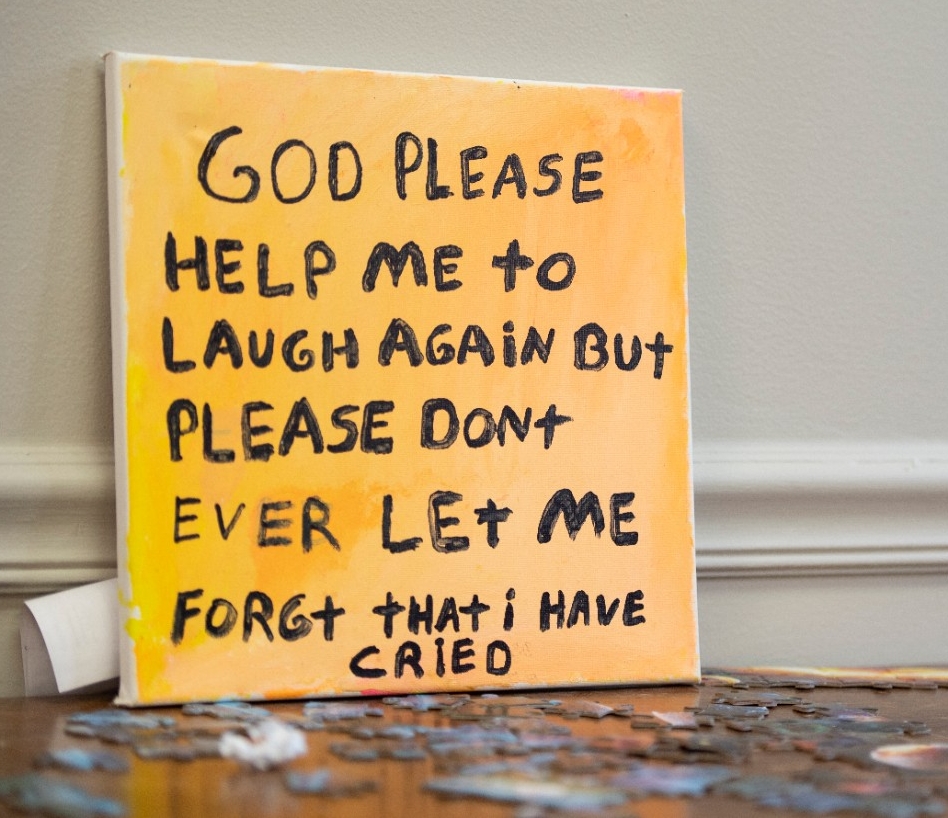 GOD PLEASE
HELP ME to
LAUGH AGAiN BUt
PLEASE DONt
EVER LEt ME
FORGt tHAt i HAVE
CRiED